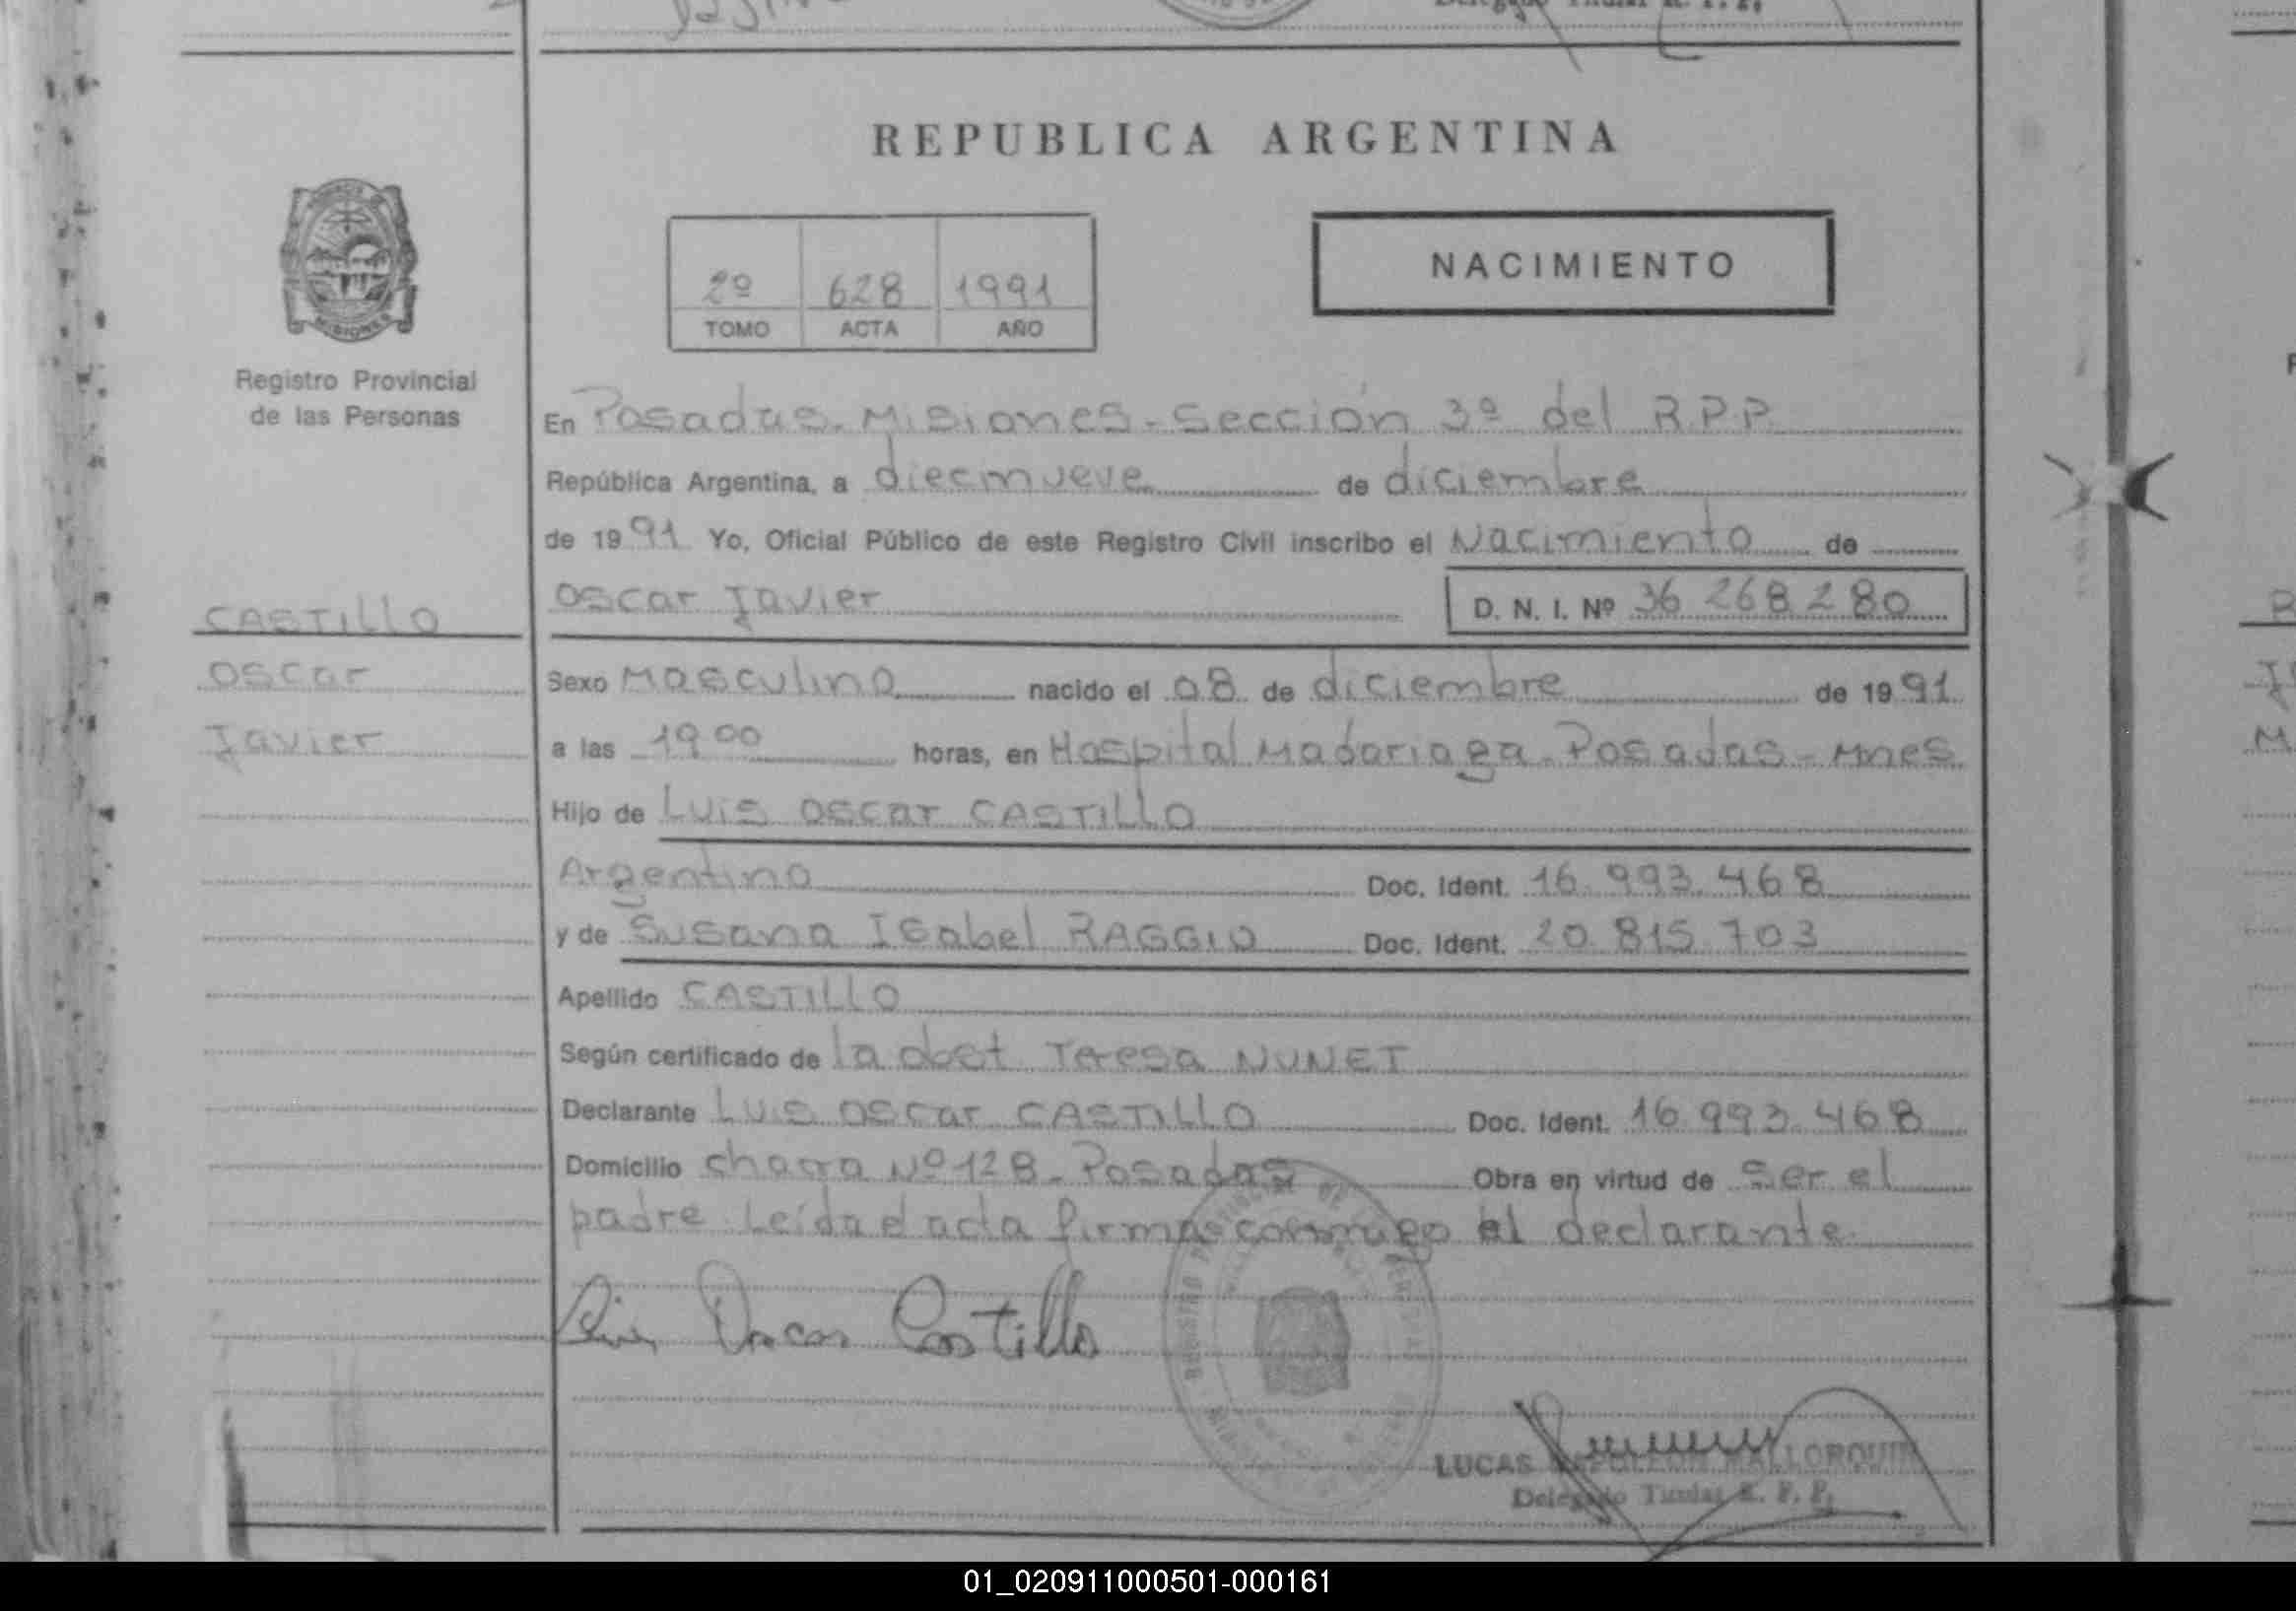 REPUBLICA ARGENTINA
MISIONES
Registro Provincial
de las Personas
2º 628 1991
TOMO ACTA AÑO
NACIMIENTO
En Posadas. Misiones - Sección 3º del R.P.P.
República Argentina, a diecinueve de diciembre
de 1991 Yo, Oficial Público de este Registro Civil inscribo el Nacimiento de
Oscar Javier D. N. I. Nº 36 268 280
CASTILLO
Oscar
Javier
Sexo Masculino nacido el 08 de diciembre de 1991
a las 19 00 horas, en Hospital Madariaga - Posadas - Mnes
Hijo de Luis Oscar CASTILLO
Argentino Doc. Ident. 16.993.468
y de Susana Isabel RAGGIO Doc. Ident. 20.815.703
Apellido CASTILLO
Según certificado de la obst Teresa
Declarante Luis Oscar CASTILLO Doc. Ident. 16.993.468
Domicilio chacra Nº 128 - Posadas Obra en virtud de ser el
padre Leída el acta firma conmigo el declarante
Luis Oscar Castillo
LUCAS NAPOLEON MALLORQUIN
Delegado Titular R. P. P.
01_020911000501-000161